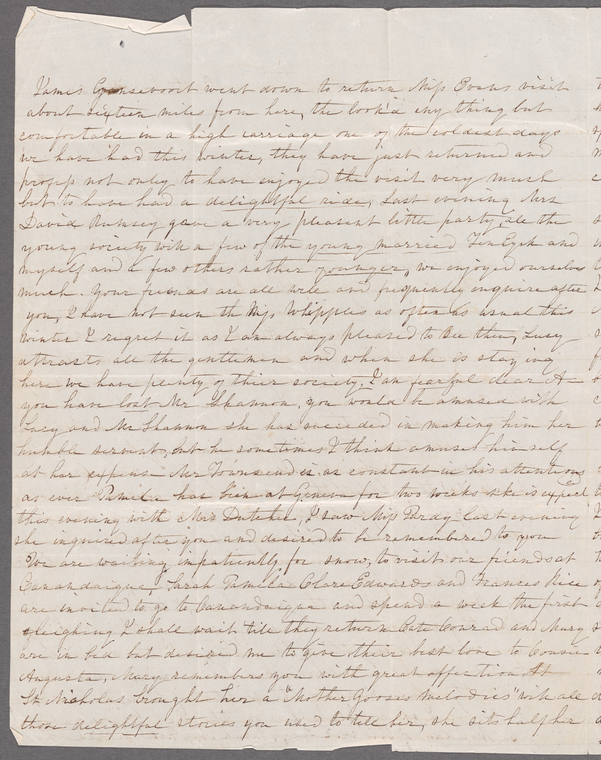 James Gansevoort went down to return Miss Evans visit
about sixteen miles from here, the look'd any thing but
comfortable in a high carriage one of the coldest days
we have had this winter, they have just returned and
profess not only to have enjoyed the visit very much
but to have had a delightful ride, Last evening Mrs
David Rumsey gave a very pleasant little party, all the
young society with a few of the young married TenEyck and
myself and a few others rather younger, we enjoyed ourselves
much. Your friends are all well and frequently enquire after
you, I have not seen th Miss Whipples as often as usual this
winter I regret it as I am always pleased to see them, Lucy
attracts all the gentlemen and when she is staying
here we have plenty of their society. I am fearful dear A—
you have lost Mr Shannon, you would be amused with
Lucy and Mr Shannon she has succeeded in making him her
humble servant, but he sometimes I think amuses himself
at her expense Mr Townsend is as constant in his attentions
as ever Pamela has been at Geneva for two weeks she is expect
this evening with Mrs Dutcher, I saw Miss Purdy last evening
she inquired after you and desired to be remembered to you
We are waiting impatiently for snow, to visit our friends at
Canandaigua, Sarah Pamela Clare Edwards and Frances Rice
are invited to go to Canandaigua and spend a week the first
sleighing I shall wait till they return Cate Conrad and Mary
are in bed but desired me to give their best love to Cousin
Augusta, Mary remembers you with great affection
St Nicholas brought her a "Mother Gooses Melodies" with all
those delightful stories you used to tell her, she sits half her